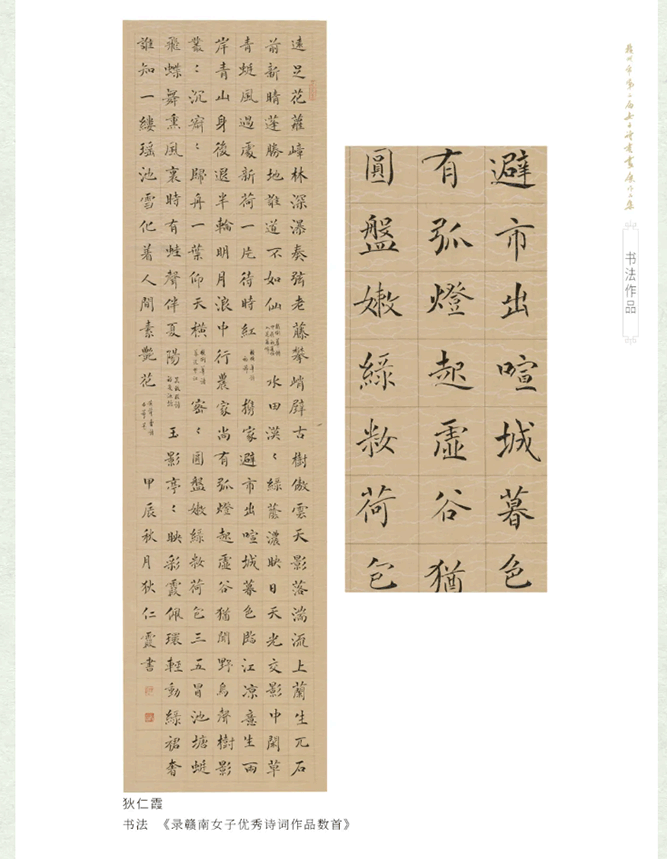 遠足花蘿嶂林深瀑奏弦老藤攀峭壁古樹傲雲天影落湍流上蘭生兀石
前新晴蓬勝地難道不如仙 水田漠〻綠蔭濃映日天光交影中閑草
青蜓風過處新荷一片待時紅 攜家避市出喧城暮色臨江凉意生兩
岸青山身後退半輪明月浪中行農家尚有孤燈起虛谷猶聞野鳥聲樹影
叢〻沉寂〻歸舟一葉仰天橫 密〻圓盤嫩綠妝荷包三五冒池塘蜓
飛蝶舞熏風裏時有蛙聲伴夏陽 玉影亭〻映彩霞佩環輕動綠裙奢
誰知一縷瑤池雪化著人間素艷花 甲辰秋月狄仁霞書
避市出喧城暮色
有孤燈起虛谷猶
圓盤嫩綠妝荷包
书法作品
狄仁霞
书法 《录赣南女子优秀诗词作品数首》